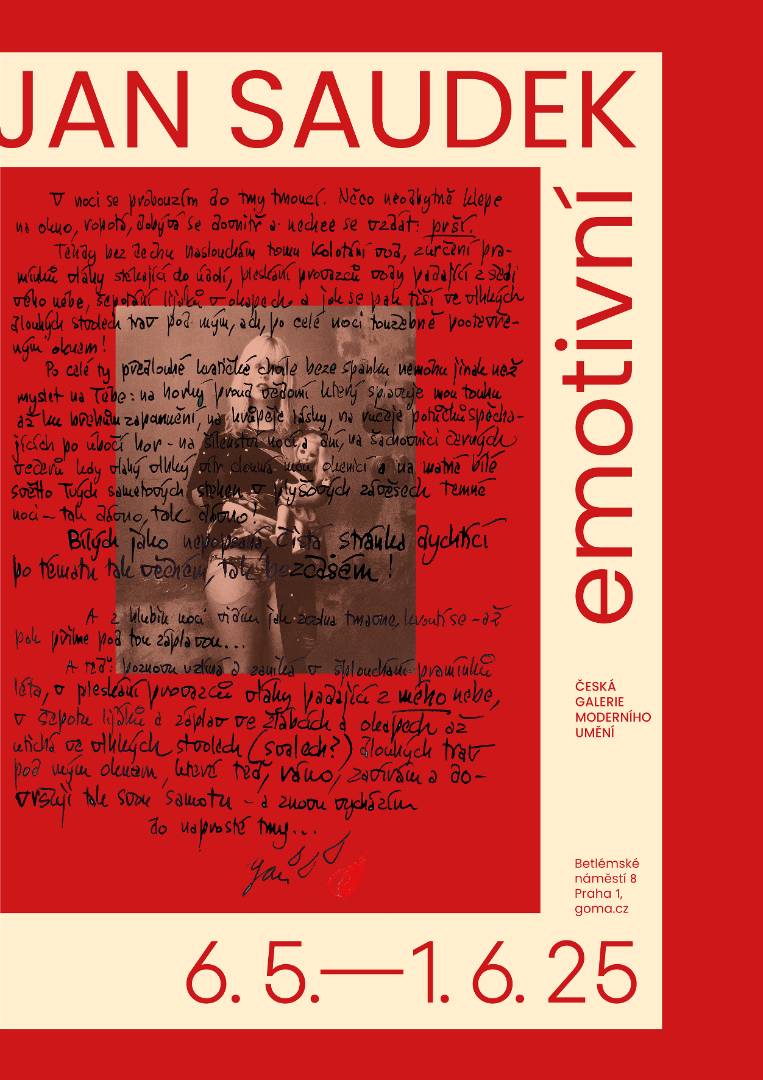 JAN SAUDEK
emotivní
V noci se probouzím do tmy tmoucí. Něco neodbytně klepe
na okno, ropotá, dobývá se dovnitř a nechce se vzdát: prší.
Tehdy bez dechu naslouchám tomu kolotání vod, zurčení pra-
mínků vláhy stékající do úádí, pleskání provazců vody padající z šedi
vého nebe, šepotání lijáků v okapech a jak se pak tiší ve vlhkých
dlouhých stvolech trav pod mým, ach, po celé noci touzebně pootevře-
ným oknem!
Po celé ty předlouhé kratičké chvíle beze spánku nemohu jinak než
myslet na Tebe: na horký proud vědomí který spaluje mou touhu
až ku břehům zapomnění, na krůpěje lásky, na potůčků spěcha-
jících po úbočí hor - na šílenství nocí a dní, na šachovnici černých
večerů kdy vlahý vlhký vítr cloumá mou okenicí a na matně bílé
světlo Tvých sametových stehen v plyšových závěsech temné
noci - tak dávno, tak dávno!
Bílých jako nepopsaná, čistá stránka dychtící
po tématu tak věčném, tak bezčasém!
A z hlubin noci vidím jak zcdna tmavne, kroutí se - až
pak přilne pod tou záplavou...
A teď: poznovu vzlíná a zaniká v šplouchání pramínků
léta, v pleskání provazců vláhy padající z mého nebe,
v šepotu lijáků a záplav ve žlabech a okapech až
utichá ve vlhkých stvolech (svalech?) dlouhých trav
pod mým oknem, které teď, ráno, zavírám a do-
vršuji tak svou samotu - a znovu vycházím
do naprosté tmy...
Jan
ČESKÁ
GALERIE
MODERNÍHO
UMĚNÍ
Betlémské
náměstí 8
Praha 1,
goma.cz
6. 5.—1. 6. 25